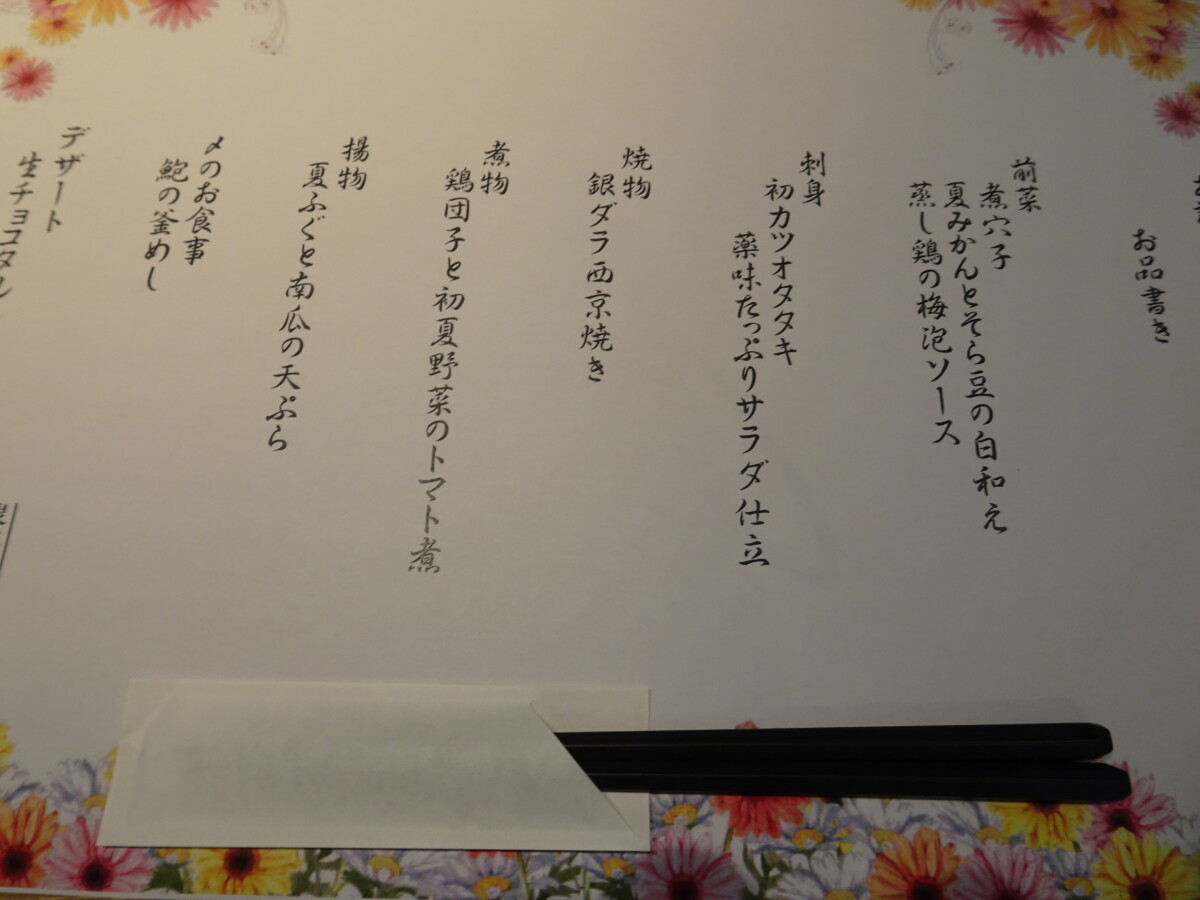 お品書き
前菜
煮穴子
夏みかんとそら豆の白和え
蒸し鶏の梅泡ソース
刺身
初カツオタタキ
薬味たっぷりサラダ仕立
焼物
銀ダラ西京焼き
煮物
鶏団子と初夏野菜のトマト煮
揚物
夏ふぐと南瓜の天ぷら
〆のお食事
鮑の釜めし
デザート
生チョコタル